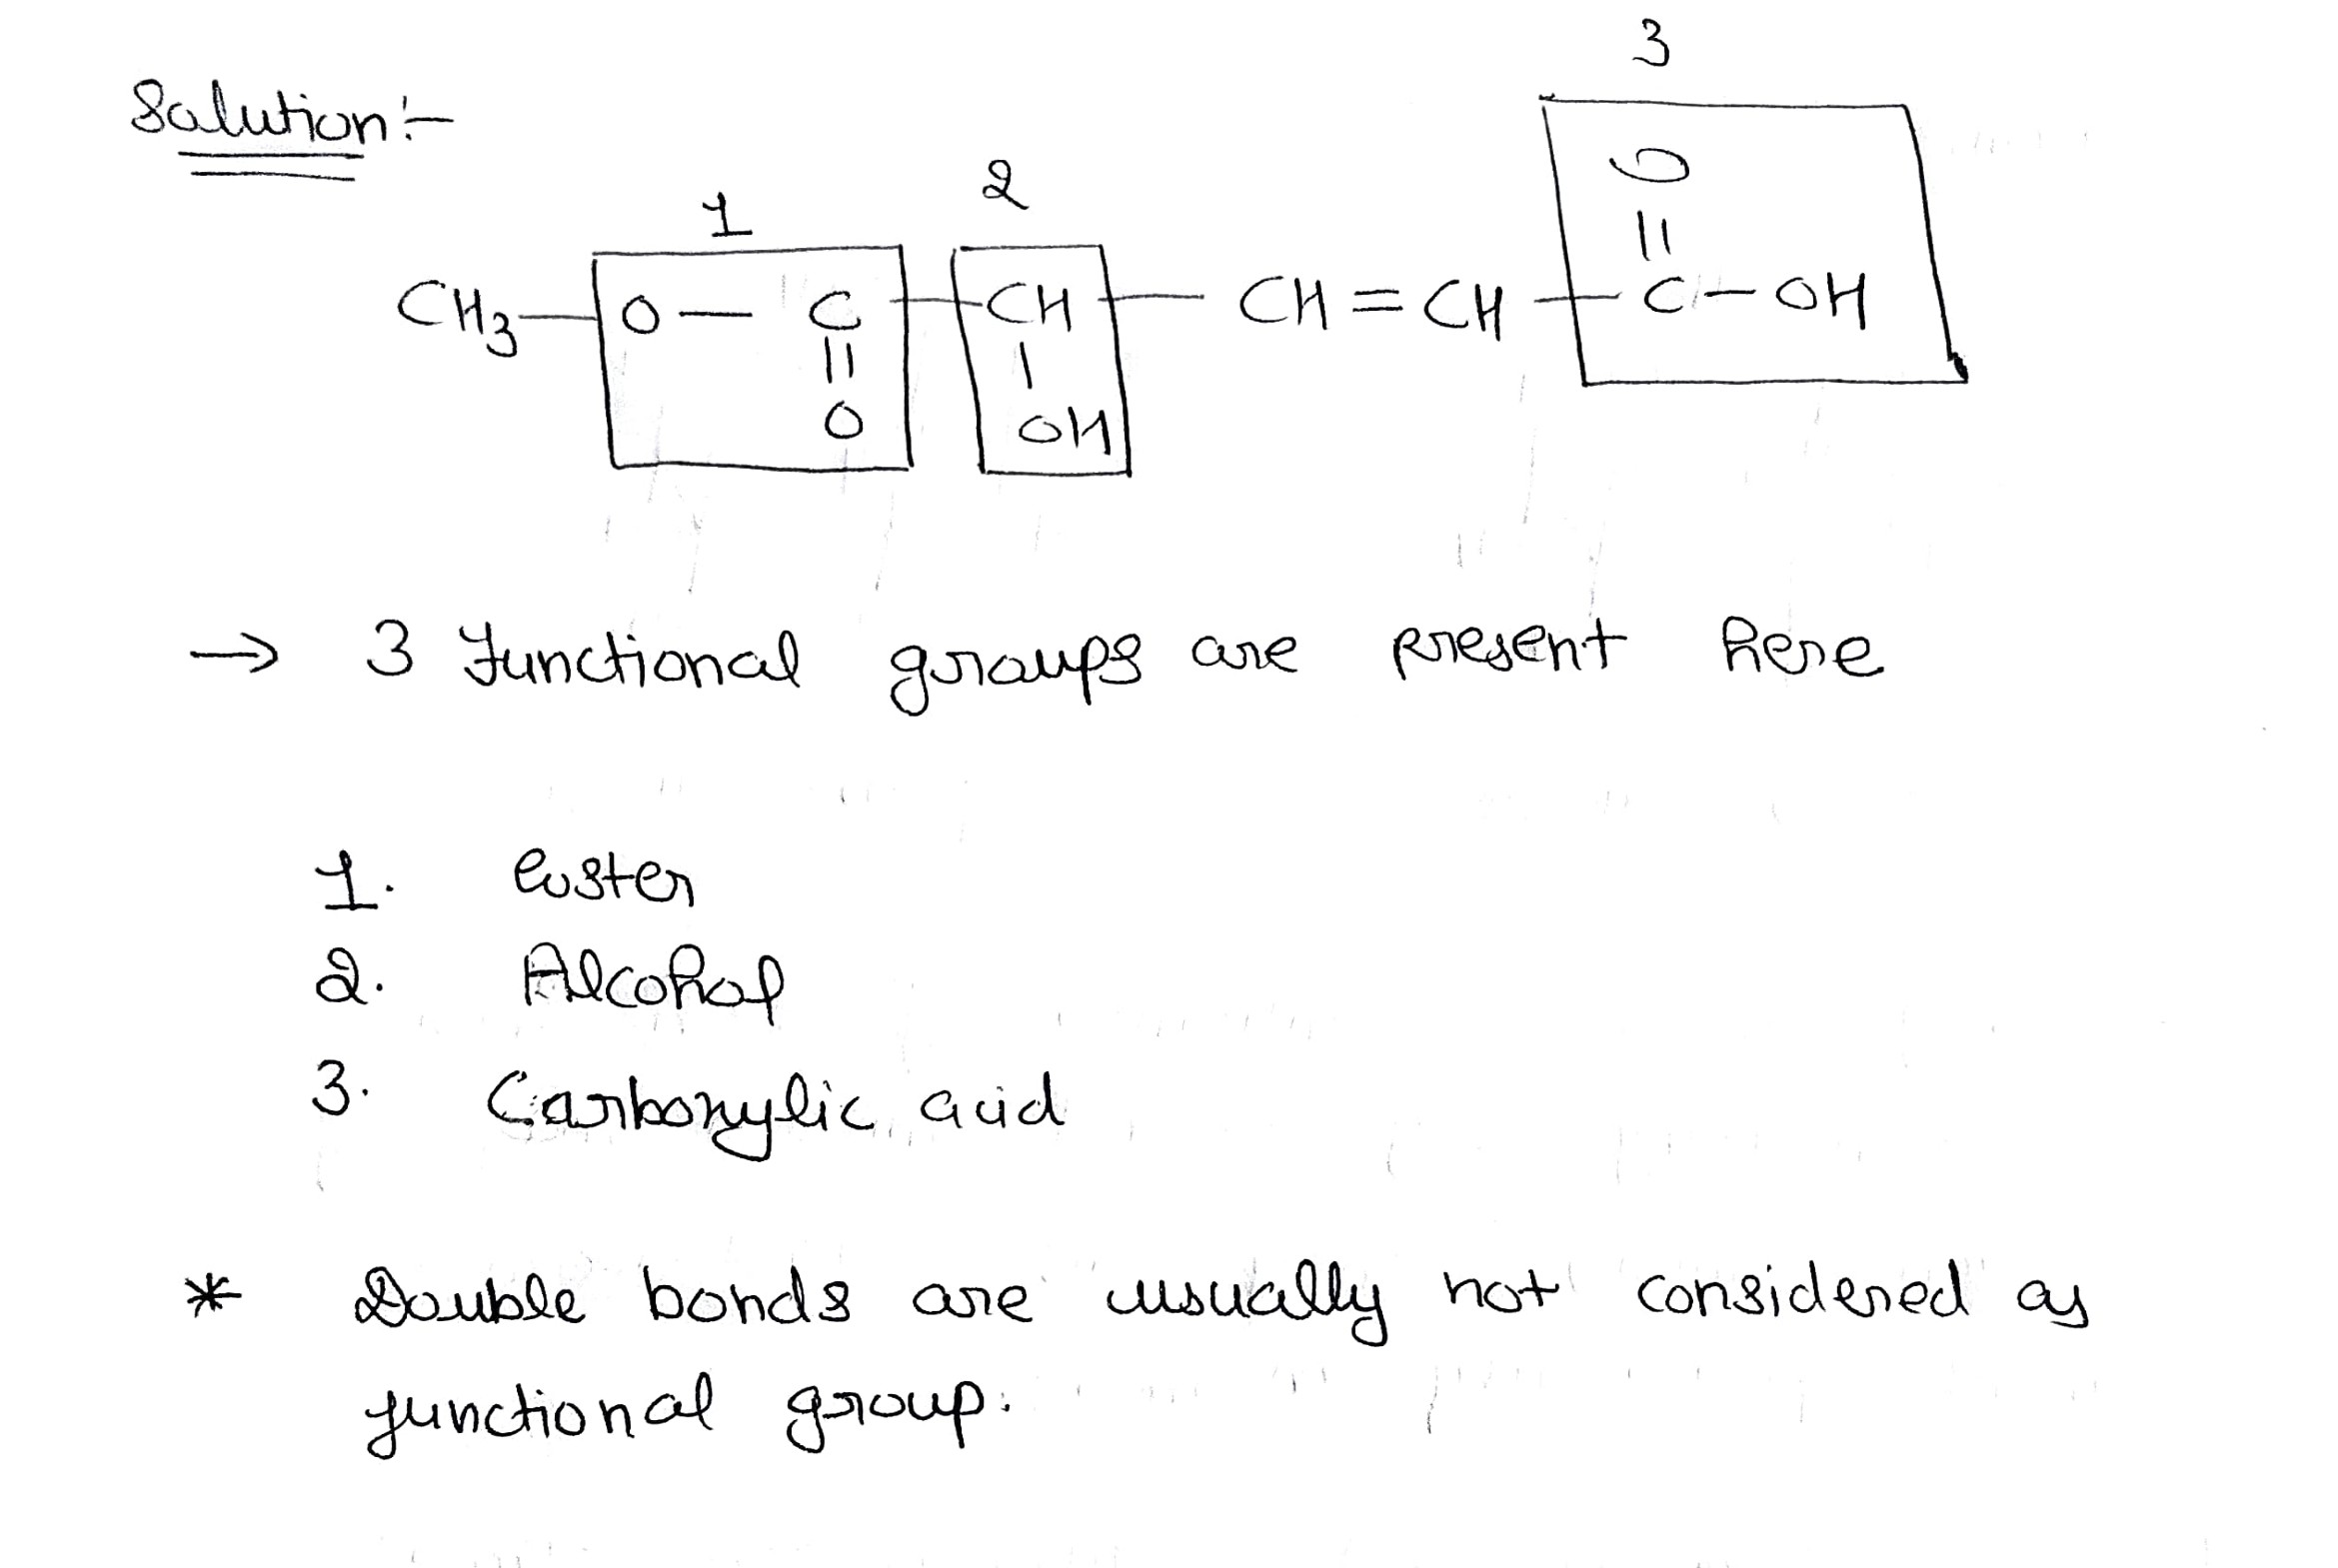 Solution:-
3
1 2
CH3—O—C—CH—CH=CH—C-OH
O
||
|| |
O OH
→ 3 Functional groups are present here
1. Ester
2. Alcohol
3. Carboxylic acid
* Double bonds are usually not considered as
functional group.